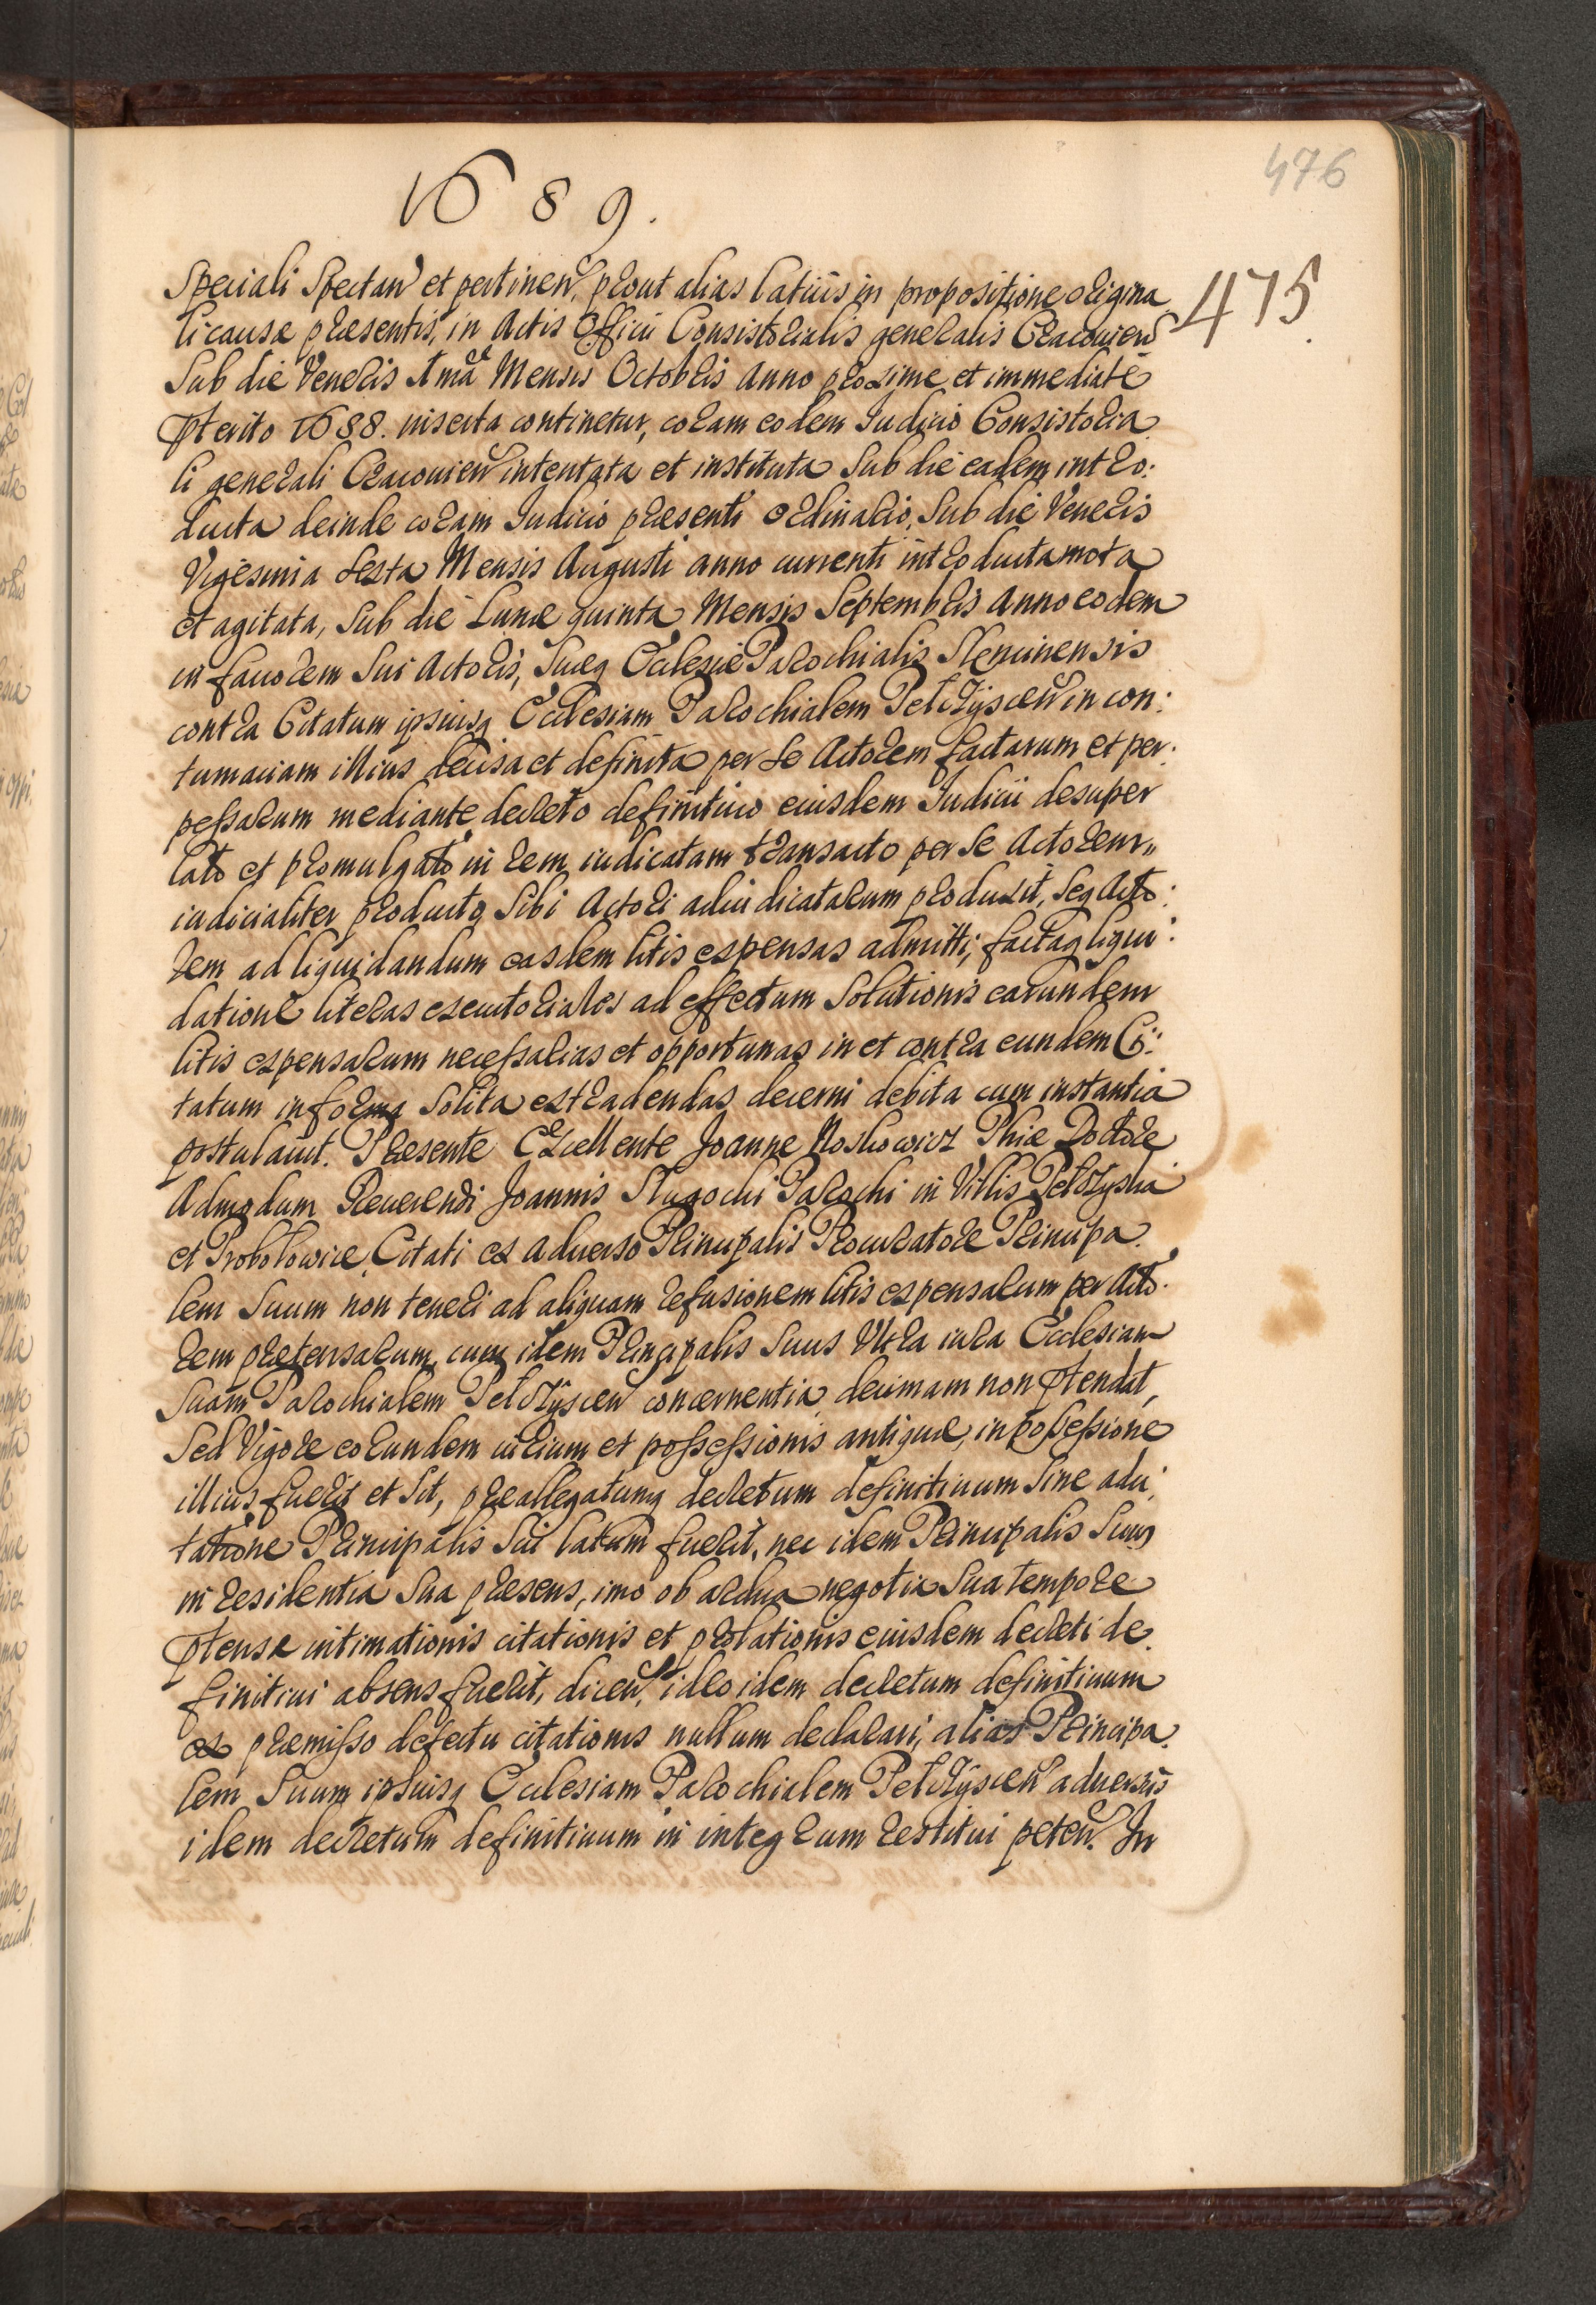 476
1689.
475
Speciali Spectan et pertinen, prout alias latius in propositione origina
li causæ præsentis, in Actis Officii Consistorialis generalis Cracovien
Sub die Veneris Ima Mensis Octobris Anno proxime et immediatè
Pterito 1688. inserta continetur, coram eodem Iudicio Consistoria
li generali Cracovien intentata et instituta Sub die eadem intro:
ducta deinde coram Iudicio præsenti Ordinario, Sub die Veneris
Vigesima Sexta Mensis Augusti anno currenti introducta mota
et agitata, Sub die Lunæ quinta Mensis Septembris Anno eodem
in favorem Sui Actoris, Suæq Ecclesiæ Parochialis
contra Citatum ipsiusq Ecclesiam Parochialem Pelczyscen in con:
tumaciam illius decisa et definita per Se Actorem factarum et per:
pessarum mediante decreto definitivo eiusdem Iudicii desuper
lato et promulgato in rem iudicatam transacto per Se Actorem
iudicialiter producto Sibi Actori adiudicatarum produxit, Seq Acto:
rem ad liquidandum easdem litis expensas admitti, factaq liqui:
datione literas executoriales ad effectum Solutionis earundem
litis expensarum necessarias et opportunas in et contra eundem Ci:
tatum in forma Solita extradendas decerni debita cum instantia
postulavit. Præsente Excellente Joanne Phiæ Doctore
Admodum Reverendi Joannis Parochi in Villis Pelczyska
et Probolowice Citati ex adverso Principalis Procuratore Principa
lem Suum non teneri ad aliquam refusionem litis expensarum per Acto:
rem prætensarum, cum idem Principalis Suus Ultra iura Ecclesiam
Suam Parochialem Pelczyscen concernentia, decimam non Ptendat,
Sed Vigore eorundem iurium et possessionis antiquæ, in possessione
illius fuerit et Sit, præallegatumq decretum definitivum Sine adci
tatione Principalis Sui latum fuerit, nec idem Principalis Suus
in residentia Sua præsens, imo ob ardua negotia Sua tempore
Ptensæ intimationis citationis et prolationis eiusdem decreti de
finitivi absens fuerit, dicen, ideo idem decretum definitivum
ex præmisso defectu citationis nullum declarari, alias Principa
lem Suum ipsiusq Ecclesiam Parochialem Pelczyscen adversus
idem decretum definitivum in integrum restitui peten. In